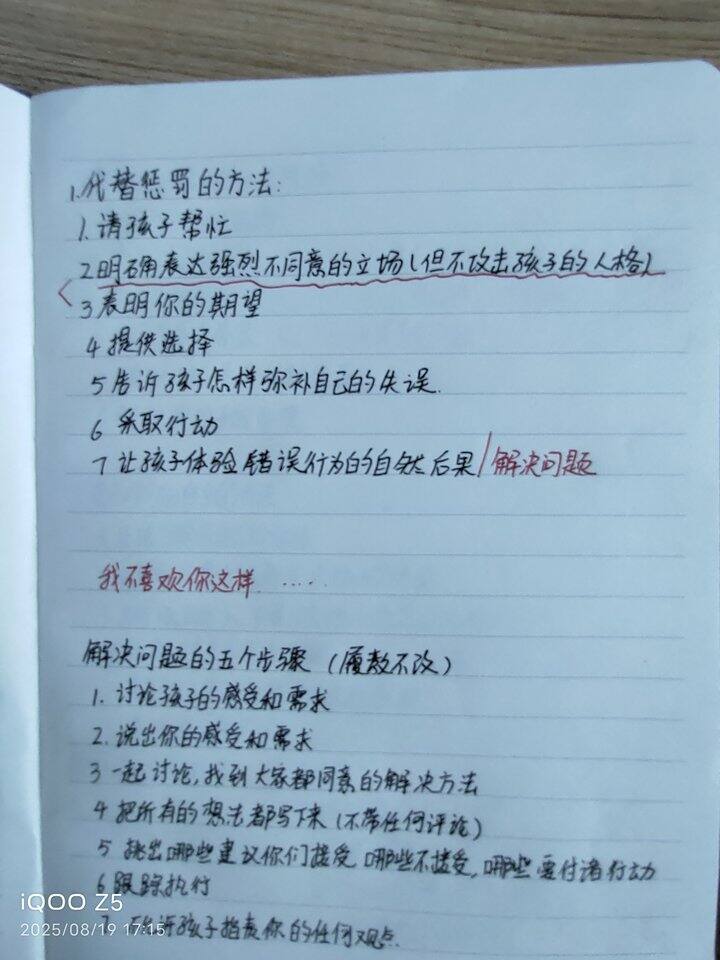 1.代替惩罚的方法:
1.请孩子帮忙
2明确表达强烈不同意的立场(但不攻击孩子的人格)
3表明你的期望
4提供选择
5告诉孩子怎样弥补自己的失误.
6 采取行动
7让孩子体验错误行为的自然后果/解决问题
我不喜欢你这样......
解决问题的五个步骤(屡教不改)
1.讨论孩子的感受和需求
2.说出你的感受和需求
3一起讨论,找到大家都同意的解决方法
4把所有的想法都写下来(不带任何评论)
5 挑出哪些建议你们接受 哪些不接受,哪些要付诸行动
6跟踪执行
孩子指责你的任何观点.
iQOO Z5
2025/08/19 17:15